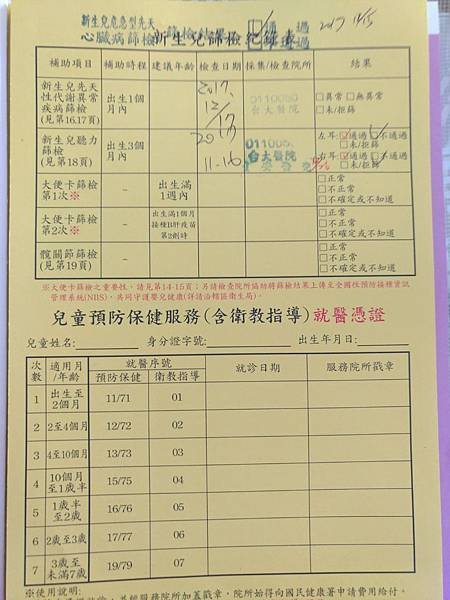 新生兒危急型先天
心臟病篩檢
新生兒篩檢紀錄表
通過
2017
補助項目 補助時程 建議年齡 檢查日期 採集/檢查院所 結果
新生兒先天
性代謝異常
疾病篩檢
(見第16.17頁)
出生1個
月內
–
2017.
12/17
0110050
台大醫院
□異常 □無異常
□未/拒篩
新生兒聽力
篩檢
(見第18頁)
出生3個
月內
–
2017
11-16
011005
台大醫院
左耳:□通過 □不通過
□未/拒篩
右耳:□通過 □不通過
□未/拒篩
大便卡篩檢
第1次※
–
出生滿
1週內
□正常
□不正常
□不確定或不知道
大便卡篩檢
第2次※
–
出生滿1個月
接種B肝疫苗
第2劑時
□正常
□不正常
□不確定或不知道
髖關節篩檢
(見第19頁)
–
□正常
□不正常
□不確定或不知道
※大便卡篩檢之重要性,請見第14-15頁;另請檢查院所協助將篩檢結果上傳至全國性預防接種資訊
管理系統(NIIS),共同守護嬰兒健康(詳請洽轄區衛生局)。
兒童預防保健服務(含衛教指導)就醫憑證
兒童姓名: 身分證字號: 出生年月日:
次數 適用月/年齡 就醫序號 就診日期 服務院所戳章
預防保健 衛教指導
1 出生至2個月 11/71 01
2 2至4個月 12/72 02
3 4至10個月 13/73 03
4 10個月至1歲半 15/75 04
5 1歲半至2歲 16/76 05
6 2歲至3歲 17/77 06
7 3歲至未滿7歲 19/79 07
※使用說明:
並經服務院所加蓋戳章,院所始得向國民健康署申請費用給付。